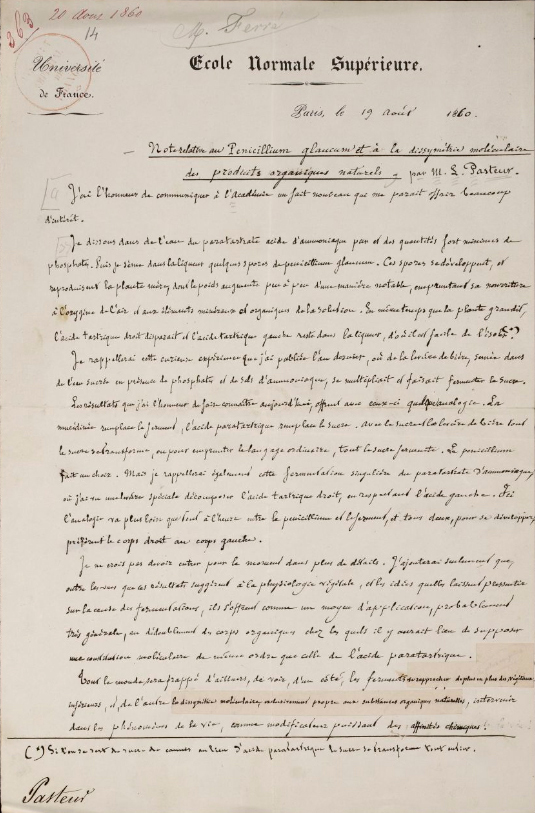 363
20 Aout 1860
14
M. Fevié
Université
de France.
École Normale Supérieure.
Paris, le 19 août 1860.
Note relative au Penicillium glaucum et à la dissymétrie moléculaire
des produits organiques naturels, par M. L. Pasteur.
J'ai l'honneur de communiquer à l'Académie un fait nouveau qui me parait offrir beaucoup
d'intérêt.
Je dissous dans de l'eau du paratartrate acide d'ammoniaque pur et des quantités fort minimes de
phosphate. Puis je sème dans la liqueur quelques spores de penicillium glaucum. Ces spores se développent, et
reproduisent la plante mère, dont le poids augmente peu à peu d'une manière notable, empruntant sa nourriture
à l'oxygène de l'air et aux éléments minéraux et organiques de la solution. En même temps que la plante grandit,
l'acide tartrique droit disparait et l'acide tartrique gauche reste dans la liqueur, d'où il est facile de l'isoler(*)
Je rappellerai cette curieuse expérience que j'ai publiée l'an dernier, où de la levûre de bière, semée dans
de l'eau sucrée en présence de phosphate et de sels d'ammoniaque, se multipliait et faisait fermenter le sucre.
Les résultats que j'ai l'honneur de faire connaître aujourd'hui, offrent avec ceux-ci quelque analogie. La
mucédinée remplace le ferment, l'acide paratartrique remplace le sucre. Avec le sucre et la levûre de bière tout
le sucre se transforme, ou pour emprunter le langage ordinaire, tout le sucre fermente. Le penicillium
fait un choix. Mais je rappellerai également cette fermentation singulière du paratartrate d'ammoniaque,
où j'ai vu une levûre spéciale décomposer l'acide tartrique droit, en respectant l'acide gauche. Ici
l'analogie va plus loin que tout à l'heure entre le penicillium et le ferment, et tous deux, pour se développer,
préfèrent le corps droit au corps gauche.
Je ne crois pas devoir entrer pour le moment dans plus de détails. J'ajouterai seulement que,
outre les vues que ces résultats suggèrent à la physiologie végétale, et les idées qu'elles laissent pressentir
sur la cause des fermentations, ils s'offrent comme un moyen d'application, probablement
très générale, au dédoublement des corps organiques chez lesquels il y aurait lieu de supposer
une constitution moléculaire de même ordre que celle de l'acide paratartrique.
Tout le monde sera frappé d'ailleurs, de voir, d'un côté, les ferments se rapprocher de plus en plus des végétaux
inférieurs, et de l'autre la dissymétrie moléculaire exclusivement propre aux substances organiques naturelles, intervenir
dans les phénomènes de la vie, comme modificateur puissant des affinités chimiques.
(*) Si l'on se sert de sucre de cannes au lieu d'acide paratartrique le sucre se transforme tout entier.
Pasteur